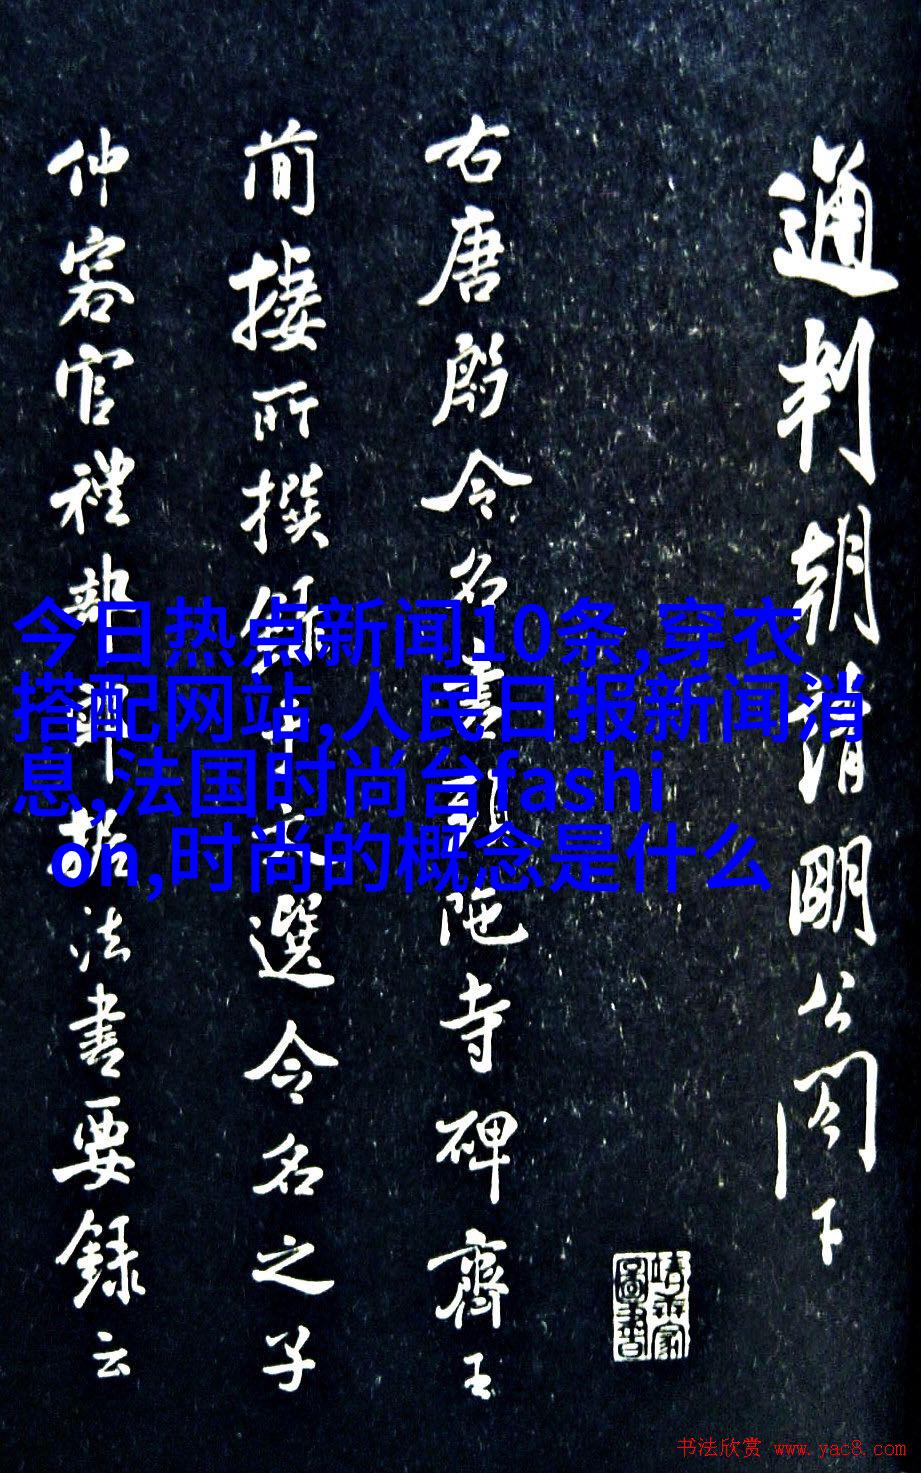 通判朝請明公閣下
右唐殷令名書頭陁寺碑齊王
簡棲所撰錄於文選令名之子
仲容官禮部郎中據法書要録云
今日热点新闻10条,穿衣
搭配网站,人民日报新闻消
息,法国时尚台fashi
on,时尚的概念是什么
书法欣赏 www.yac8.com